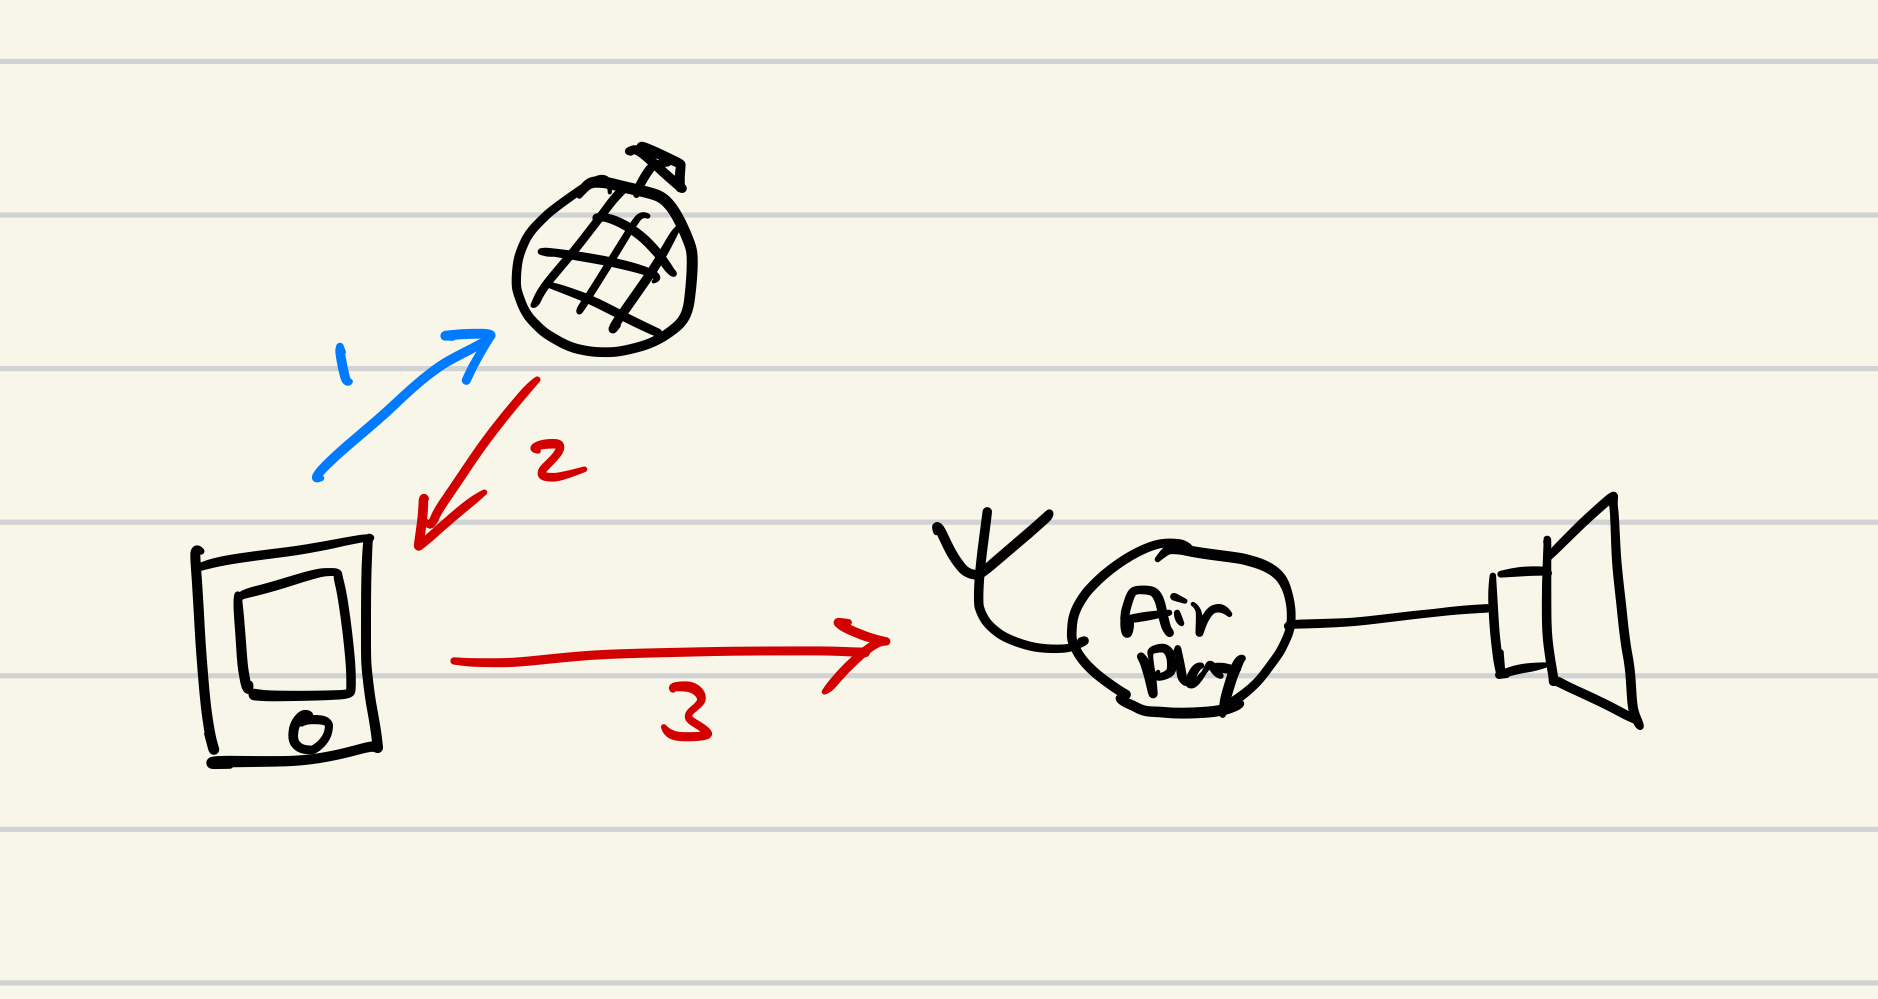 1
2
Air
Play
3